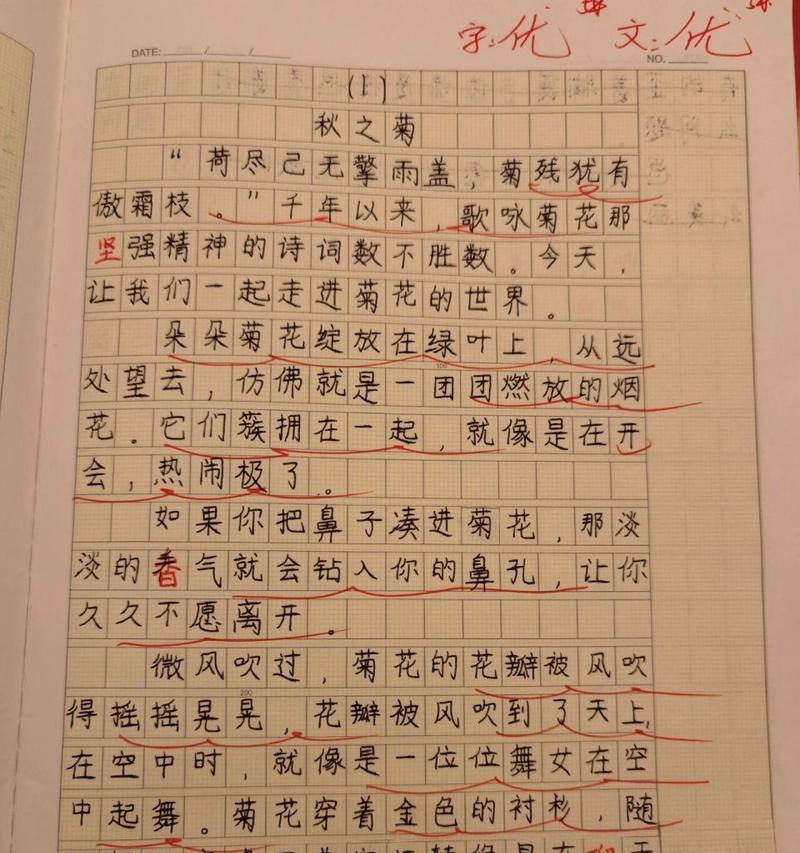 字:优 文:优
DATE: / /
NO.
(1)
秋之菊
“荷尽己无擎雨盖,菊残犹有
傲霜枝。”千年以来,歌咏菊花那
坚强精神的诗词数不胜数。今天,
让我们一起走进菊花的世界。
朵朵菊花绽放在绿叶上,从远
处望去,仿佛就是一团团燃放的烟
100
花。它们簇拥在一起,就像是在开
会,热闹极了。
如果你把鼻子凑进菊花,那淡
淡的香气就会钻入你的鼻孔,让你
久久不愿离开。
微风吹过,菊花的花瓣被风吹
200
得摇摇晃晃,花瓣被风吹到了天上,
在空中时,就像是一位位舞女在空
中起舞。菊花穿着金色的衬衫,随